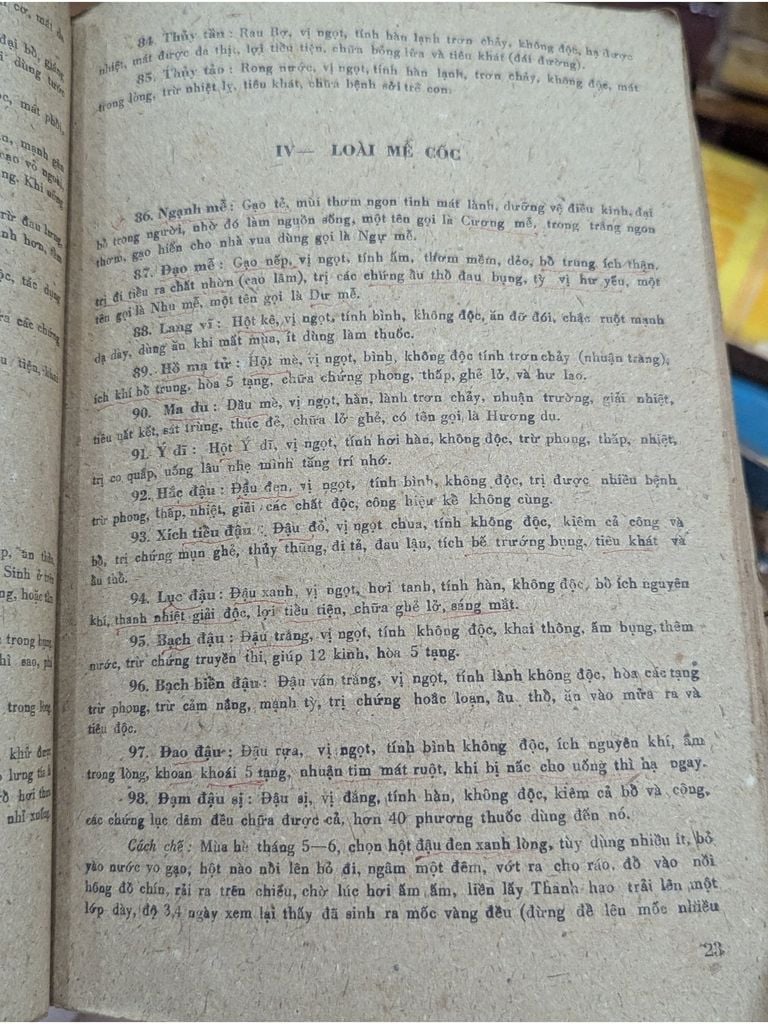 84. Thủy tần : Rau Bợ, vị ngọt, tính hàn lạnh trơn chảy, không độc, hạ được
nhiệt, mát được da thịt, lợi tiểu tiện, chữa bỏng lửa và tiêu khát (đái đường).
85. Thủy tảo : Rong nước, vị ngọt, tính hàn lạnh, trơn chảy, không độc, mát
trong lòng, trừ nhiệt lỵ, tiêu khát, chữa bệnh sởi trẻ con.
IV— LOÀI MỄ CỐC
86. Ngạnh mễ : Gạo tẻ, mùi thơm ngon tính mát lành, dưỡng vệ điều kinh, đại
bổ trong người, nhờ đó làm nguồn sống, một tên gọi là Cương mễ, trong trắng ngon
thơm, gạo hiến cho nhà vua dùng gọi là Ngự mễ.
87. Đạo mễ : Gạo nếp, vị ngọt, tính ấm, thơm mềm, dẻo, bổ trung ích thận,
trị đi tiểu ra chất nhờn (cao lâm), trị các chứng ẩu thổ đau bụng, tỳ vị hư yếu, một
tên gọi là Nhu mễ, một tên gọi là Dư mễ.
88. Lang vĩ : Hột kê, vị ngọt, tính bình, không độc, ăn đỡ đói, chắc ruột mạnh
dạ dày, dùng ăn khi mất mùa, ít dùng làm thuốc.
89. Hồ ma tử : Hột mè, vị ngọt, bình, không độc tính trơn chảy (nhuận tràng),
ích khí bổ trung, hòa 5 tạng, chữa chứng phong, thấp, ghẻ lở, và hư lao.
90. Ma du : Dầu mè, vị ngọt, hàn, lành trơn chảy, nhuận trường, giải nhiệt,
tiêu uất kết, sát trùng, thúc đẻ, chữa lở ghẻ, có tên gọi là Hương du.
91. Ý dĩ : Hột Ý dĩ, vị ngọt, tính hơi hàn, không độc, trừ phong, thấp, nhiệt,
trị co quắp, uống lâu nhẹ mình tăng trí nhớ.
92. Hắc đậu : Đậu đen, vị ngọt, tính bình, không độc, trị được nhiều bệnh
trừ phong, thấp, nhiệt, giải các chất độc, công hiệu kể không cùng.
93. Xích tiểu đậu : Đậu đỏ, vị ngọt chua, tính không độc, kiêm cả công và
bổ, trị chứng mụn ghẻ, thủy thũng, đi tả, đau lậu, tích bế trướng bụng, tiêu khát và
ẩu thổ.
94. Lục đậu : Đậu xanh, vị ngọt, hơi tanh, tính hàn, không độc, bổ ích nguyên
khí, thanh nhiệt giải độc, lợi tiểu tiện, chữa ghẻ lở, sáng mắt.
95. Bạch đậu : Đậu trắng, vị ngọt, tính không độc, khai thông, ấm bụng, thêm
nước, trừ chứng truyền thi, giúp 12 kinh, hòa 5 tạng.
96. Bạch biển đậu : Đậu ván trắng, vị ngọt, tính lành không độc, hòa các tạng
trừ phong, trừ cảm nắng, mạnh tỳ, trị chứng hoắc loạn, ẩu thổ, ăn vào mửa ra và
tiêu độc.
97. Đao đậu : Đậu rựa, vị ngọt, tính bình không độc, ích nguyên khí, ấm
trong lòng, khoan khoái 5 tạng, nhuận tim mát ruột, khi bị nấc cho uống thì hạ ngay.
98. Đạm đậu sị : Đậu sị, vị đắng, tính hàn, không độc, kiêm cả bổ và công,
các chứng lục dâm đều chữa được cả, hơn 40 phương thuốc dùng đến nó.
Cách chế : Mùa hè tháng 5—6, chọn hột đậu đen xanh lòng, tùy dùng nhiều ít, bỏ
vào nước vo gạo, hột nào nổi lên bỏ đi, ngâm một đêm, vớt ra cho ráo, đổ vào nồi
hông đồ chín, rải ra trên chiếu, chờ lúc hơi ấm ấm, liền lấy Thanh hao trải lên một
lớp dày, độ 3,4 ngày xem lại thấy đã sinh ra mốc vàng đều (đừng để lên mốc nhiều
23